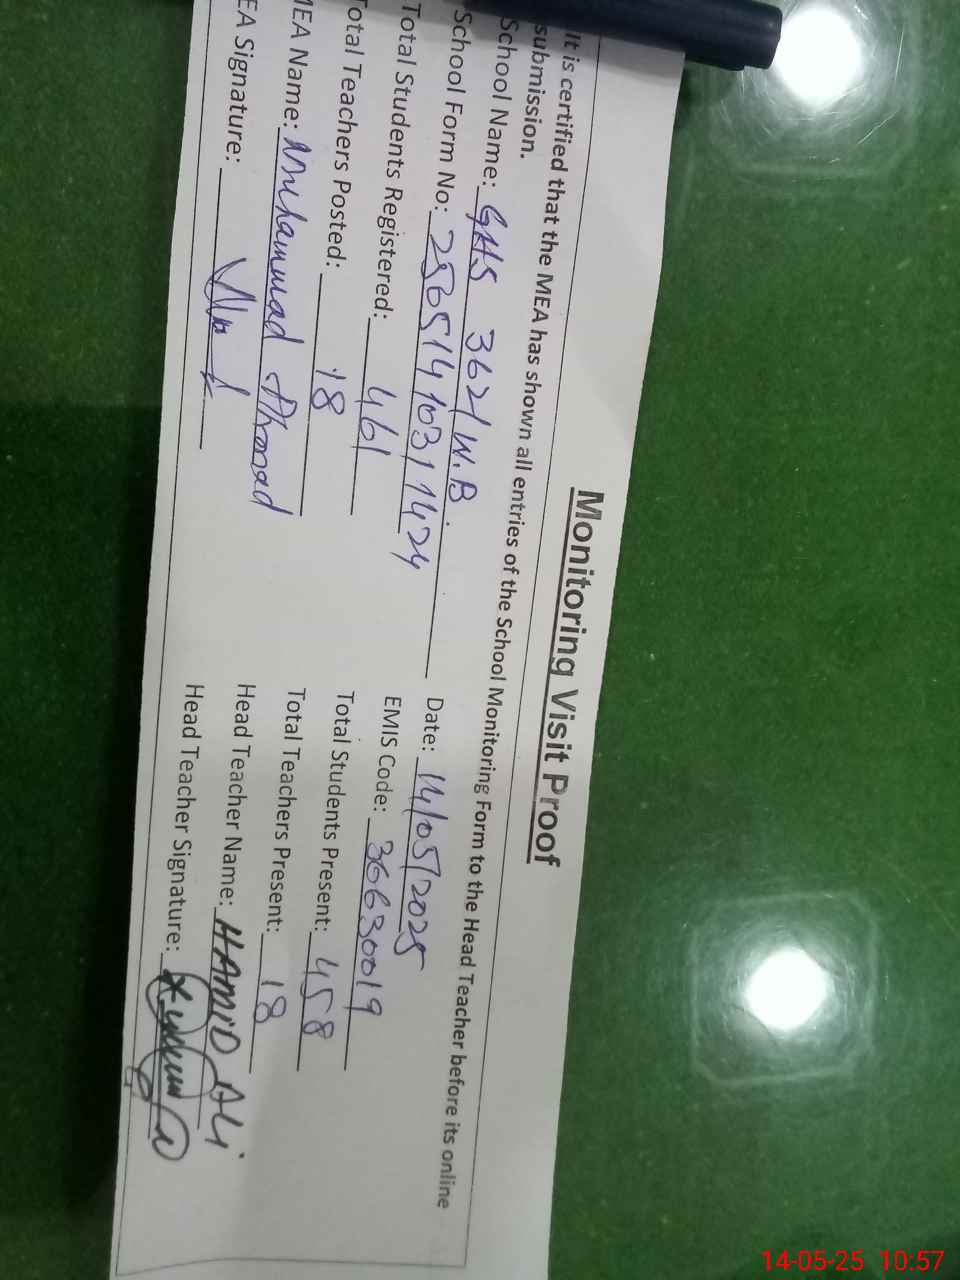 Monitoring Visit Proof
It is certified that the MEA has shown all entries of the School Monitoring Form to the Head Teacher before its online
submission.
School Name: GHS 362/W.B. Date: 14/05/2025
School Form No: EMIS Code: 36630019
Total Students Registered: 461 Total Students Present: 458
Total Teachers Posted: 18 Total Teachers Present: 18
MEA Name: Muhammad Head Teacher Name: HAMID Ali
EA Signature: Head Teacher Signature:
14-05-25 10:57